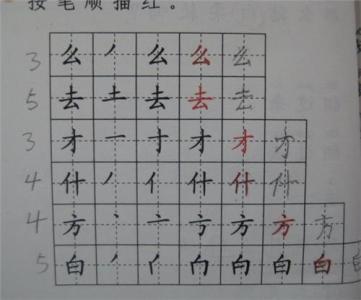 按笔顺描红。
3 么 丿 么 么 么
5 去 土 去 去 去
3 才 一 寸 才 才 才
4 什 丿 亻 什 什 什
4 方 丶 亠 亐 方 方 方
5 白 丿 亻 白 白 白 白